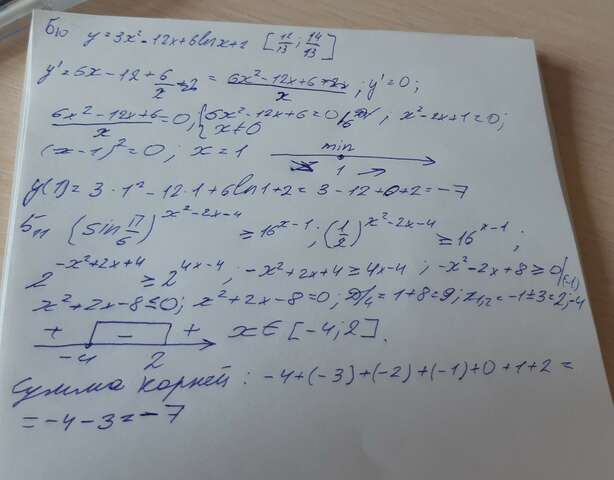 Б10 y=3x²-12x+6lnx+2 [12/13; 14/13]
y'=6x-12+6/x = (6x²-12x+6)/x; y'=0;
(6x²-12x+6)/x=0, {6x²-12x+6=0, x≠0 x²-2x+1=0;
(x-1)²=0; x=1 min 1
y(1)=3·1²-12·1+6ln1+2=3-12+0+2=-7
Б11 (sin π/6)^(x²-2x-4) ≥16^(x-1); (1/2)^(x²-2x-4) ≥16^(x-1);
2^(-x²+2x+4) ≥ 2^(4x-4); -x²+2x+4≥4x-4; -x²-2x+8≥0/(-1)
x²+2x-8≤0; x²+2x-8=0; D/4=1+8=9; x1,2=-1±3=2;-4
+ - + -4 2 x∈[-4;2].
Сумма корней: -4+(-3)+(-2)+(-1)+0+1+2=
=-4-3=-7